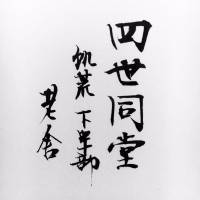 四世同堂
饥荒 下半部
老舍